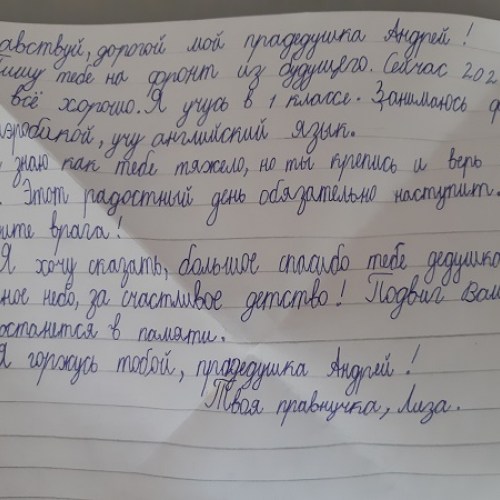 авствуй, дорогой мой прадедушка Андрей!
Пишу тебе на фронт из будущего. Сейчас 202
всё хорошо. Я учусь в 1 классе. Занимаюсь ф
аэробикой, учу английский язык.
знаю как тебе тяжело, но ты крепись и верь
. Этот радостный день обязательно наступит.
ите врага!
Я хочу сказать, большое спасибо тебе дедушка
ное небо, за счастливое детство! Подвиг Ваш
останется в памяти.
Я горжусь тобой, прадедушка Андрей!
Твоя правнучка, Лиза.